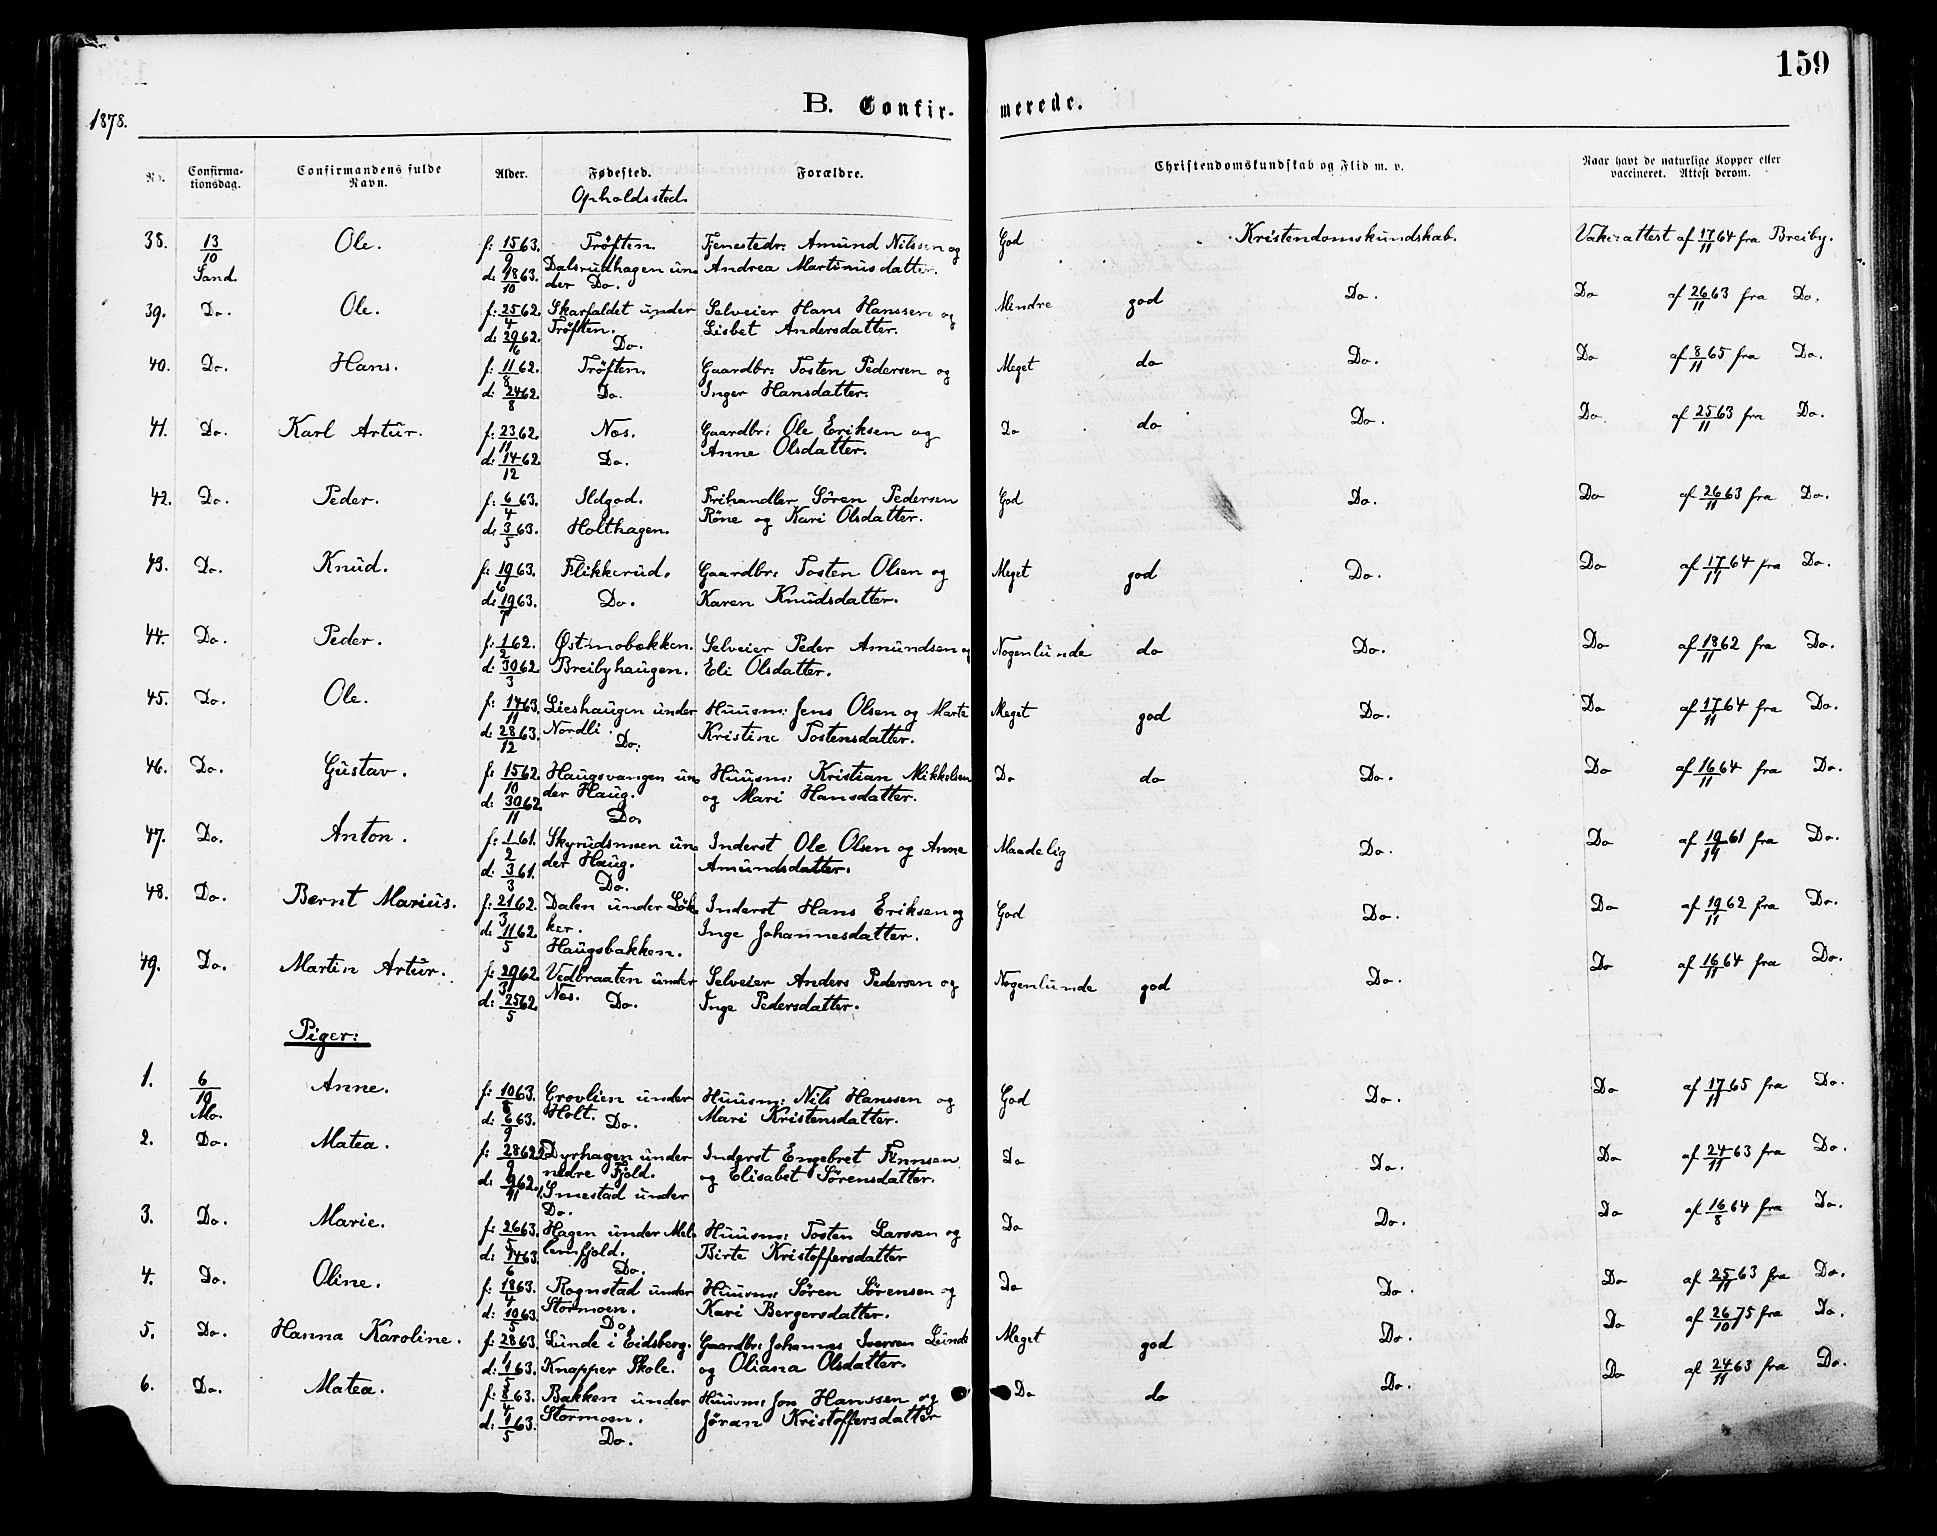 159
B. Confirmerede.
1878.
No. Confirmationsdag. Confirmandens fulde Navn. Alder. Fødested. Opholdssted. Forældre. Christendomskundskab og Flid m. v. Naar havt de naturlige Kopper eller vaccineret. Attest derom.
38. 13/10 Ole. f: 15/9 63. Trøften. Tjenestedr: Amund Nilssen og God Kristendomskundskab. Vakc:attest af 17/11 64 fra Breiby.
Sand. d: 18/10 63. Dalsrudhagen under Do. Andrea Martinusdatter.
39. Do. Ole. f: 25/4 62. Skarfaldet under Selveier Hans Hanssen og Mindre god Do. Do af 26/11 63 fra Do.
d: 29/6 62. Trøften. Do. Lisbet Andersdatter.
40. Do. Hans. f: 11/8 62. Trøften. Gaardbr: Tosten Pedersen og Meget do Do. Do af 8/11 65 fra Do.
d: 24/8 62. Do. Inger Hansdatter.
41. Do. Karl Artur. f: 23/11 62. Nes. Gaardbr: Ole Eriksen og Do do Do. Do. af 25/11 63 fra Do.
d: 14/12 62. Do. Anne Olsdatter.
42. Do. Peder. f: 6/4 63. Ildgod. Frihandler Søren Pedersen God Do. Do af 26/11 63 fra Do.
d: 3/5 63. Holthagen. Röne og Kari Olsdatter.
43. Do. Knud. f: 19/6 63. Flikkerud. Gaardbr: Tosten Olsen og Meget god Do. Do af 17/11 64 fra Do.
d: 19/7 63. Do. Karen Knudsdatter.
44. Do. Peder. f: 1/2 62. Østmobakken. Selveier Peder Amundsen og Nogenlunde do Do. Do af 18/11 62 fra Do.
d: 30/3 62 Breibyhaugen. Eli Olsdatter.
45. Do. Ole. f: 14/11 63. Lieshaugen under Huusm: Jens Olsen og Marte Meget god Do. Do af 17/11 64 fra Do.
d: 28/12 63. Nordli. Do. Kristine Tostensdatter.
46. Do. Gustav. f: 15/10 62. Haugsvangen un- Huusm: Kristian Mikkelsen Do do Do. Do af 16/11 64 fra Do.
d: 30/11 62. der Haug. Do. og Mari Hansdatter.
47. Do. Anton. f: 1/2 61. Skyrudsmoen un- Inderst Ole Olsen og Anne Maadelig Do. Do af 19/11 61 fra Do.
d: 3/3 61. der Haug. Do. Amundsdatter.
48. Do. Bernt Marius. f: 21/3 62. Dalen under Løk- Inderst Hans Eriksen og God Do. Do af 19/11 62 fra Do.
d: 11/5 62. ker. Haugsbakken. Inge Johannesdatter.
49. Do. Martin Artur. f: 29/3 62. Vedbraaten under Selveier Anders Pedersen og Nogenlunde god Do. Do af 16/11 64 fra Do.
d: 25/5 62. Nes. Do. Inge Pedersdatter.
Piger:
1. 6/10 Anne. f: 10/8 63. Grovlien under Huusm: Nils Hanssen og God Do. Do af 17/11 65 fra Do.
Mo. d: 6/9 63. Holt. Do. Mari Kristensdatter.
2. Do. Matea. f: 28/9 62. Dyrhagen under Inderst Engebret Finnsen Do Do. Do af 24/11 63 fra Do.
d: 9/11 62. nedre Fjeld. Smestad under Do. og Elisabet Sørensdatter.
3. Do. Marie. f: 26/5 63. Hagen under Mel- Huusm: Tosten Larssen og Do Do. Do af 16/8 64 fra Do.
d: 14/6 63. lemfjeld. Do. Birte Kristoffersdatter
4. Do. Oline. f: 18/4 63. Rognstad under Huusm: Søren Sørensen og Do Do. Do af 25/11 63 fra Do.
d: 10/5 63. Stormoen. Do. Kari Bergersdatter.
5. Do. Hanna Karoline. f: 28/1 63. Lunde i Eidsberg. Gaardbr: Johannes Iversen Lunde Meget god Do. Do af 26/10 75 fra Do.
d: 1/5 63. Knapper Skole. og Oliana Olsdatter.
6. Do. Matea. f: 8/4 63. Bakken under Huusm: Jon Hanssen og Do do Do. Do af 24/11 63 fra Do.
d: 1/5 63. Stormoen. Do. Jöran Kristoffersdatter